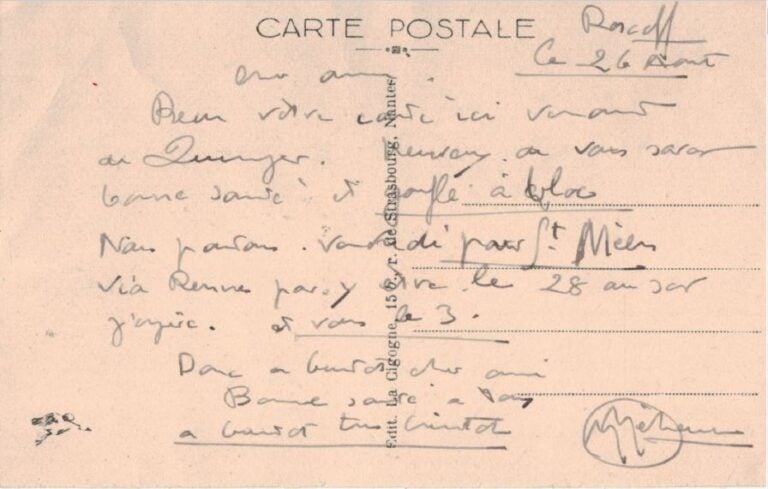 CARTE POSTALE
Roscoff
Ce 26 Août
Cher ami.
Reçu votre carte ici venant
de Quimper. Heureux de vous savoir
bonne santé et gonflé à bloc
Nous partons vendredi pour St Méen
via Rennes pour y être le 28 au soir
j'espère. et vous le 3.
Donc a bientôt cher ami
Bonne santé a tous
a bientôt très bientôt
Edit. La Cigogne, r. de Strasbourg, Nantes